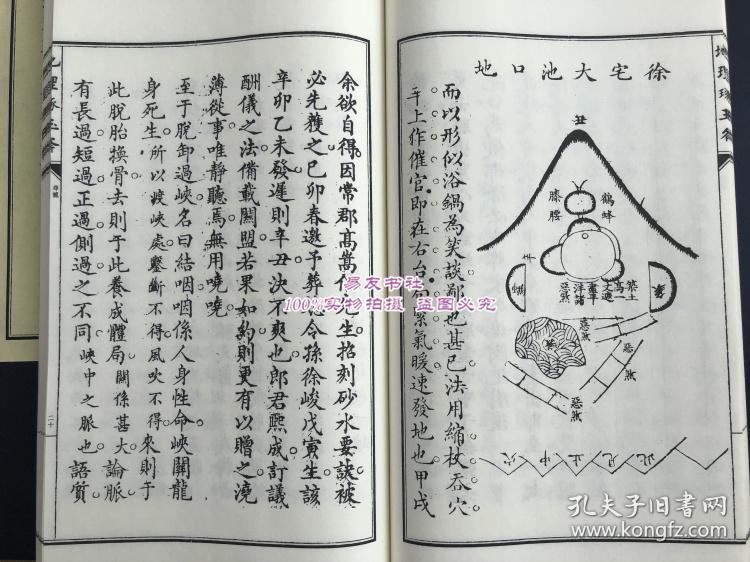 徐宅大池口地
丑
鶴蜂
膝腰
築土
高一
文遮
蓋平
洋諸
惡煞
惡煞
惡煞
惡煞
此見中止穴
而以形似浴鍋為笑談鄙也甚巳法用縮杖吞穴
平上作催官即在右台后際氣暖速發地也甲戌
余欲自得因常郡高嵩
生招刻砂水要訣被
必先獲之已卯春邀予葬
令孫徐峻戊寅生該
辛卯乙未發遲則辛丑決不爽也郎君熙成訂議
酬儀之法備載關盟若果如約則更有以贈之澆
薄從事唯靜聽焉無用嘵嘵
至于脫卸過峽名曰結咽咽係人身性命峽關龍
身死生所以渡峽處鑿斷不得風吹不得來則于
此脫胎換骨去則于此養成體局關係甚大論脈
有長過短過正過側過之不同峽中之脈也語質
二十
地理琢玉斧
易友书社
100%实物拍摄 盗图必究
孔夫子旧书网
www.kongfz.com